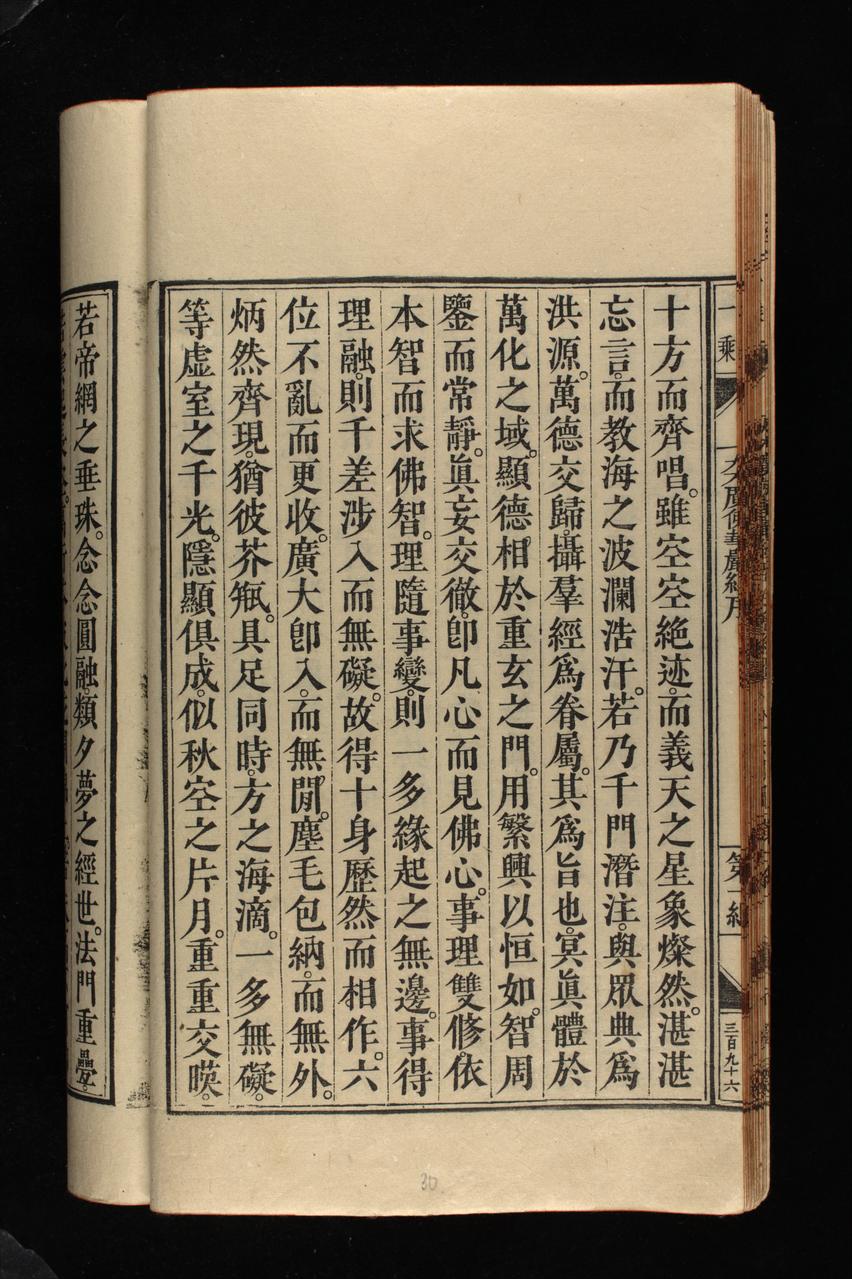 一乘
大方廣佛華嚴經序
第一紙
三百九十六
十方而齊唱。雖空空絶迹。而義天之星象燦然。湛湛
忘言。而教海之波瀾浩汗。若乃千門潛注。與眾典為
洪源。萬德交歸。攝羣經為眷屬。其為旨也。冥眞體於
萬化之域。顯德相於重玄之門。用繁興以恒如。智周
鑒而常靜。眞妄交徹。卽凡心而見佛心。事理雙修。依
本智而求佛智。理隨事變。則一多緣起之無邊。事得
理融。則千差涉入而無礙。故得十身歷然而相作。六
位不亂而更收。廣大卽入。而無閒。塵毛包納。而無外。
炳然齊現。猶彼芥缾。具足同時。方之海滴。一多無礙。
等虛室之千光。隱顯俱成。似秋空之片月。重重交暎。
若帝網之垂珠。念念圓融。類夕夢之經世。法門重疊。